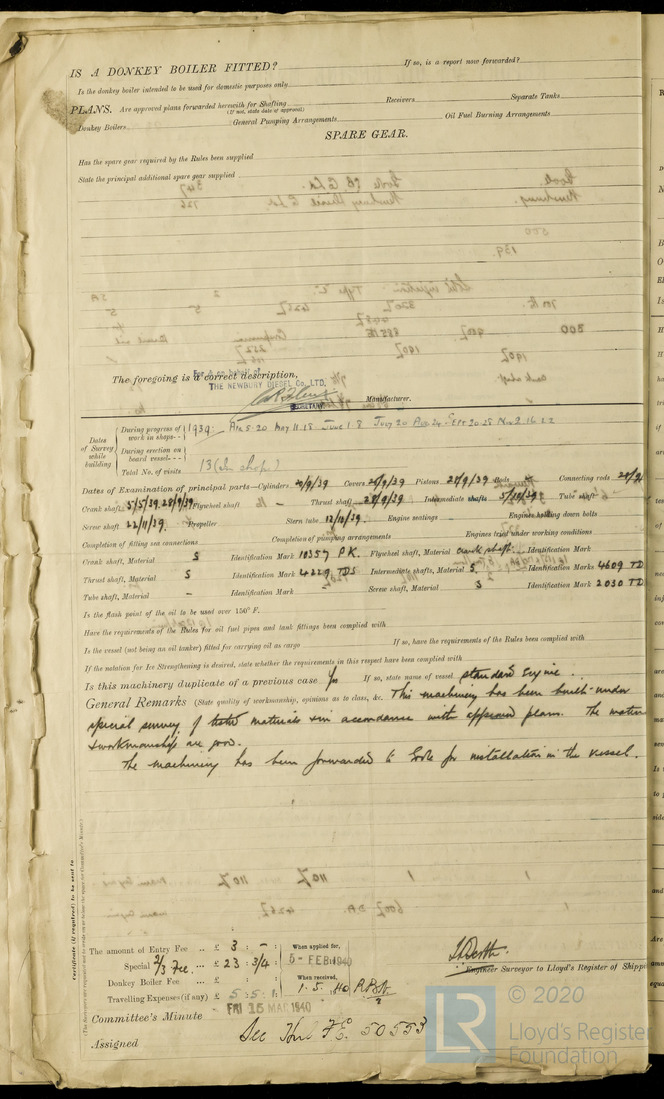 IS A DONKEY BOILER FITTED? If so, is a report now forwarded?
Is the donkey boiler intended to be used for domestic purposes only
PLANS. Are approved plans forwarded herewith for Shafting Receivers Separate Tanks
(If not, state date of approval)
Donkey Boilers General Pumping Arrangements Oil Fuel Burning Arrangements
SPARE GEAR.
Has the spare gear required by the Rules been supplied
State the principal additional spare gear supplied
The foregoing is a correct description,
For & on behalf of
THE NEWBURY DIESEL Co., LTD.
SECRETARY Manufacturer.
Dates of Survey while building
During progress of work in shops - - 1939: Apl 5. 20 May 11. 18 June 1 8 July 20 Aug 24 Sept 20 28 Nov 2. 16. 22
During erection on board vessel - - -
Total No. of visits 13 (In shop)
Dates of Examination of principal parts—Cylinders 20/9/39 Covers 20/9/39 Pistons 28/9/39 Rods Connecting rods 20/9/
Crank shaft 5/5/39. 28/9/39 Flywheel shaft Thrust shaft 28/9/39 Intermediate shafts 5/10/39 Tube shaft
Screw shaft 22/11/39. Propeller Stern tube 12/10/39. Engine seatings Engines holding down bolts
Completion of fitting sea connections Completion of pumping arrangements Engines tried under working conditions
Crank shaft, Material S Identification Mark 10357 P.K. Flywheel shaft, Material crank shaft. Identification Mark
Thrust shaft, Material S Identification Mark 4229 TDS Intermediate shafts, Material S Identification Marks 4609 TD
Tube shaft, Material - Identification Mark Screw shaft, Material S Identification Mark 2030 TD
Is the flash point of the oil to be used over 150° F.
Have the requirements of the Rules for oil fuel pipes and tank fittings been complied with
Is the vessel (not being an oil tanker) fitted for carrying oil as cargo If so, have the requirements of the Rules been complied with
If the notation for Ice Strengthening is desired, state whether the requirements in this respect have been complied with
Is this machinery duplicate of a previous case Yes If so, state name of vessel standard Engine
General Remarks (State quality of workmanship, opinions as to class, &c. This machinery has been built under
special survey of tested materials & in accordance with approved plans. The mater
& workmanship are good.
The machinery has been forwarded to Goole for installation in the vessel.
Certificate (if required) to be sent to
The amount of Entry Fee .. £ 3 : - :
Special 2/3 Fee. ... £ 23 : 3/4 :
Donkey Boiler Fee ... £ : :
Travelling Expenses (if any) £ 5 : 5 : 1.
When applied for,
5 - FEB 1940
When received,
1. 5. 40
Engineer Surveyor to Lloyd's Register of Shippi
Committee's Minute FRI 15 MAR 1940
Assigned See Hul F.E. 50553
LR
© 2020
Lloyd's Register
Foundation